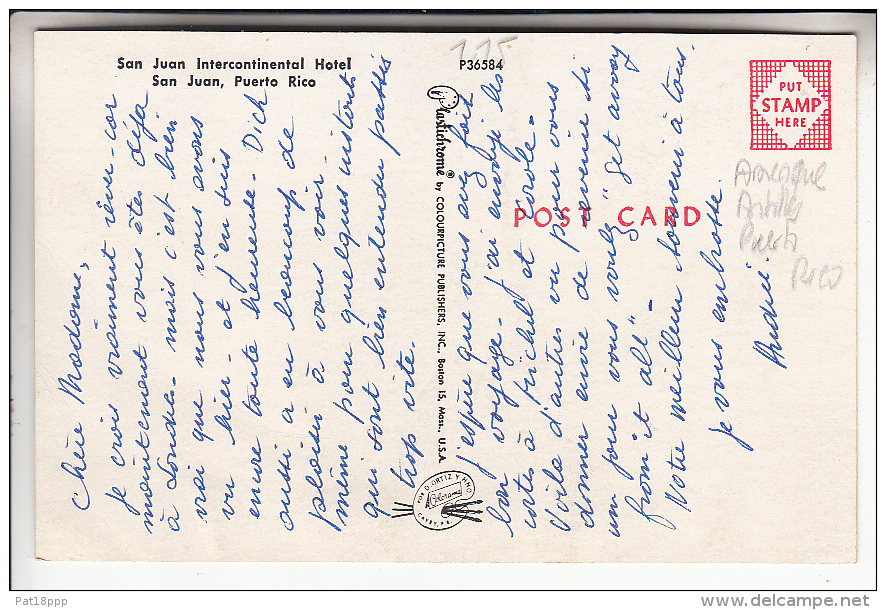 San Juan Intercontinental Hotel
San Juan, Puerto Rico
P36584
1.15
PUT
STAMP
HERE
POST CARD
Plastichrome® by COLOURPICTURE PUBLISHERS, INC., Boston 15, Mass., U.S.A.
FOR D. ORTIZ Y HNO.
CAYEY, P.R.
Antilles
Rico
Chère Madame,
je crois vraiment rêver - car
maintenant vous êtes déja
à Londres - mais c'est bien
vrai que nous vous avons
vu hier - et j'en suis
encore toute heureuse. Dick
aussi a eu beaucoup de
plaisir à vous voir -
même pour quelques instants
qui sont bien entendu passés
trop vite.
J'espère que vous avez fait
bon voyage - j'ai envoyé les
cartes à Michel et Carole -
Voilà d'autres vu pour vous
donner envie de revenir si
un jour vous voulez "get away
from it all" -
Votre meilleur souvenir à tous.
Je vous embrasse.
Pat18ppp
delcampe.net